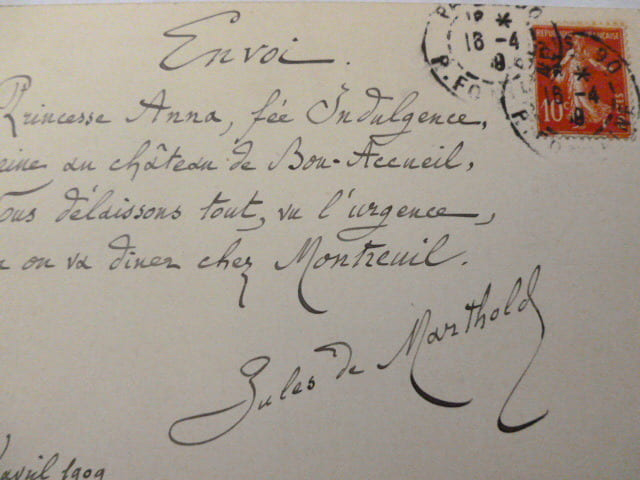 Envoi.
Princesse Anna, fée Indulgence,
eine au château de Bon-Accueil,
ous délaissons tout, vu l'urgence,
on va diner chez Montreuil.
Jules de Marthold
avril 1909
REPUBLIQUE FRANÇAISE
10c
POSTES
16-4
9
16-4
9